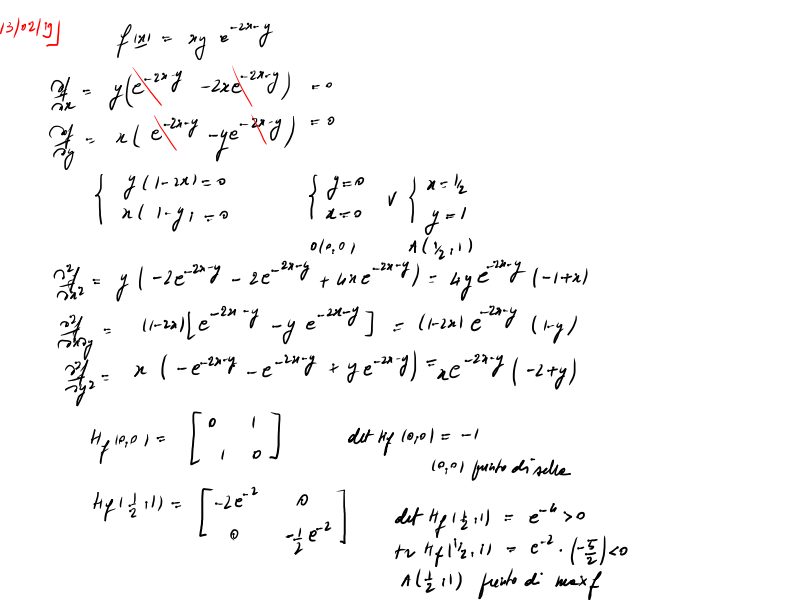 13/02/19]
f(x) = xy e^{-2x-y}
∂f/∂x = y(e^{-2x-y} - 2xe^{-2x-y}) = 0
∂f/∂y = x( e^{-2x-y} - ye^{-2x-y}) = 0
{ y(1-2x) = 0 { y=0 ∨ { x=1/2
x(1-y) = 0 x=0 y=1
O(0,0) A(1/2,1)
∂²f/∂x² = y (-2e^{-2x-y} - 2e^{-2x-y} + 4xe^{-2x-y}) = 4ye^{-2x-y} (-1+x)
∂²f/∂x∂y = (1-2x)[e^{-2x-y} - y e^{-2x-y}] = (1-2x) e^{-2x-y} (1-y)
∂²f/∂y² = x (-e^{-2x-y} - e^{-2x-y} + ye^{-2x-y}) = xe^{-2x-y} (-2+y)
Hf(0,0) = [ 0 1 ; 1 0 ] det Hf(0,0) = -1
(0,0) punto di sella
Hf(1/2,1) = [ -2e^{-2} 0 ; 0 -1/2 e^{-2} ]
det Hf(1/2,1) = e^{-4} > 0
tr Hf(1/2,1) = e^{-2} · (-5/2) < 0
A(1/2,1) punto di max f